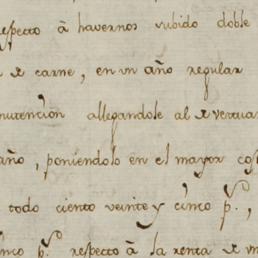 respecto â havernos subido doble
de carne, en un año regular
nutencion allegandole al de vestua
año, poniendolo en el mayor cos
todo ciento veinte y cinco p.,
nco p. respecto â la renta de un